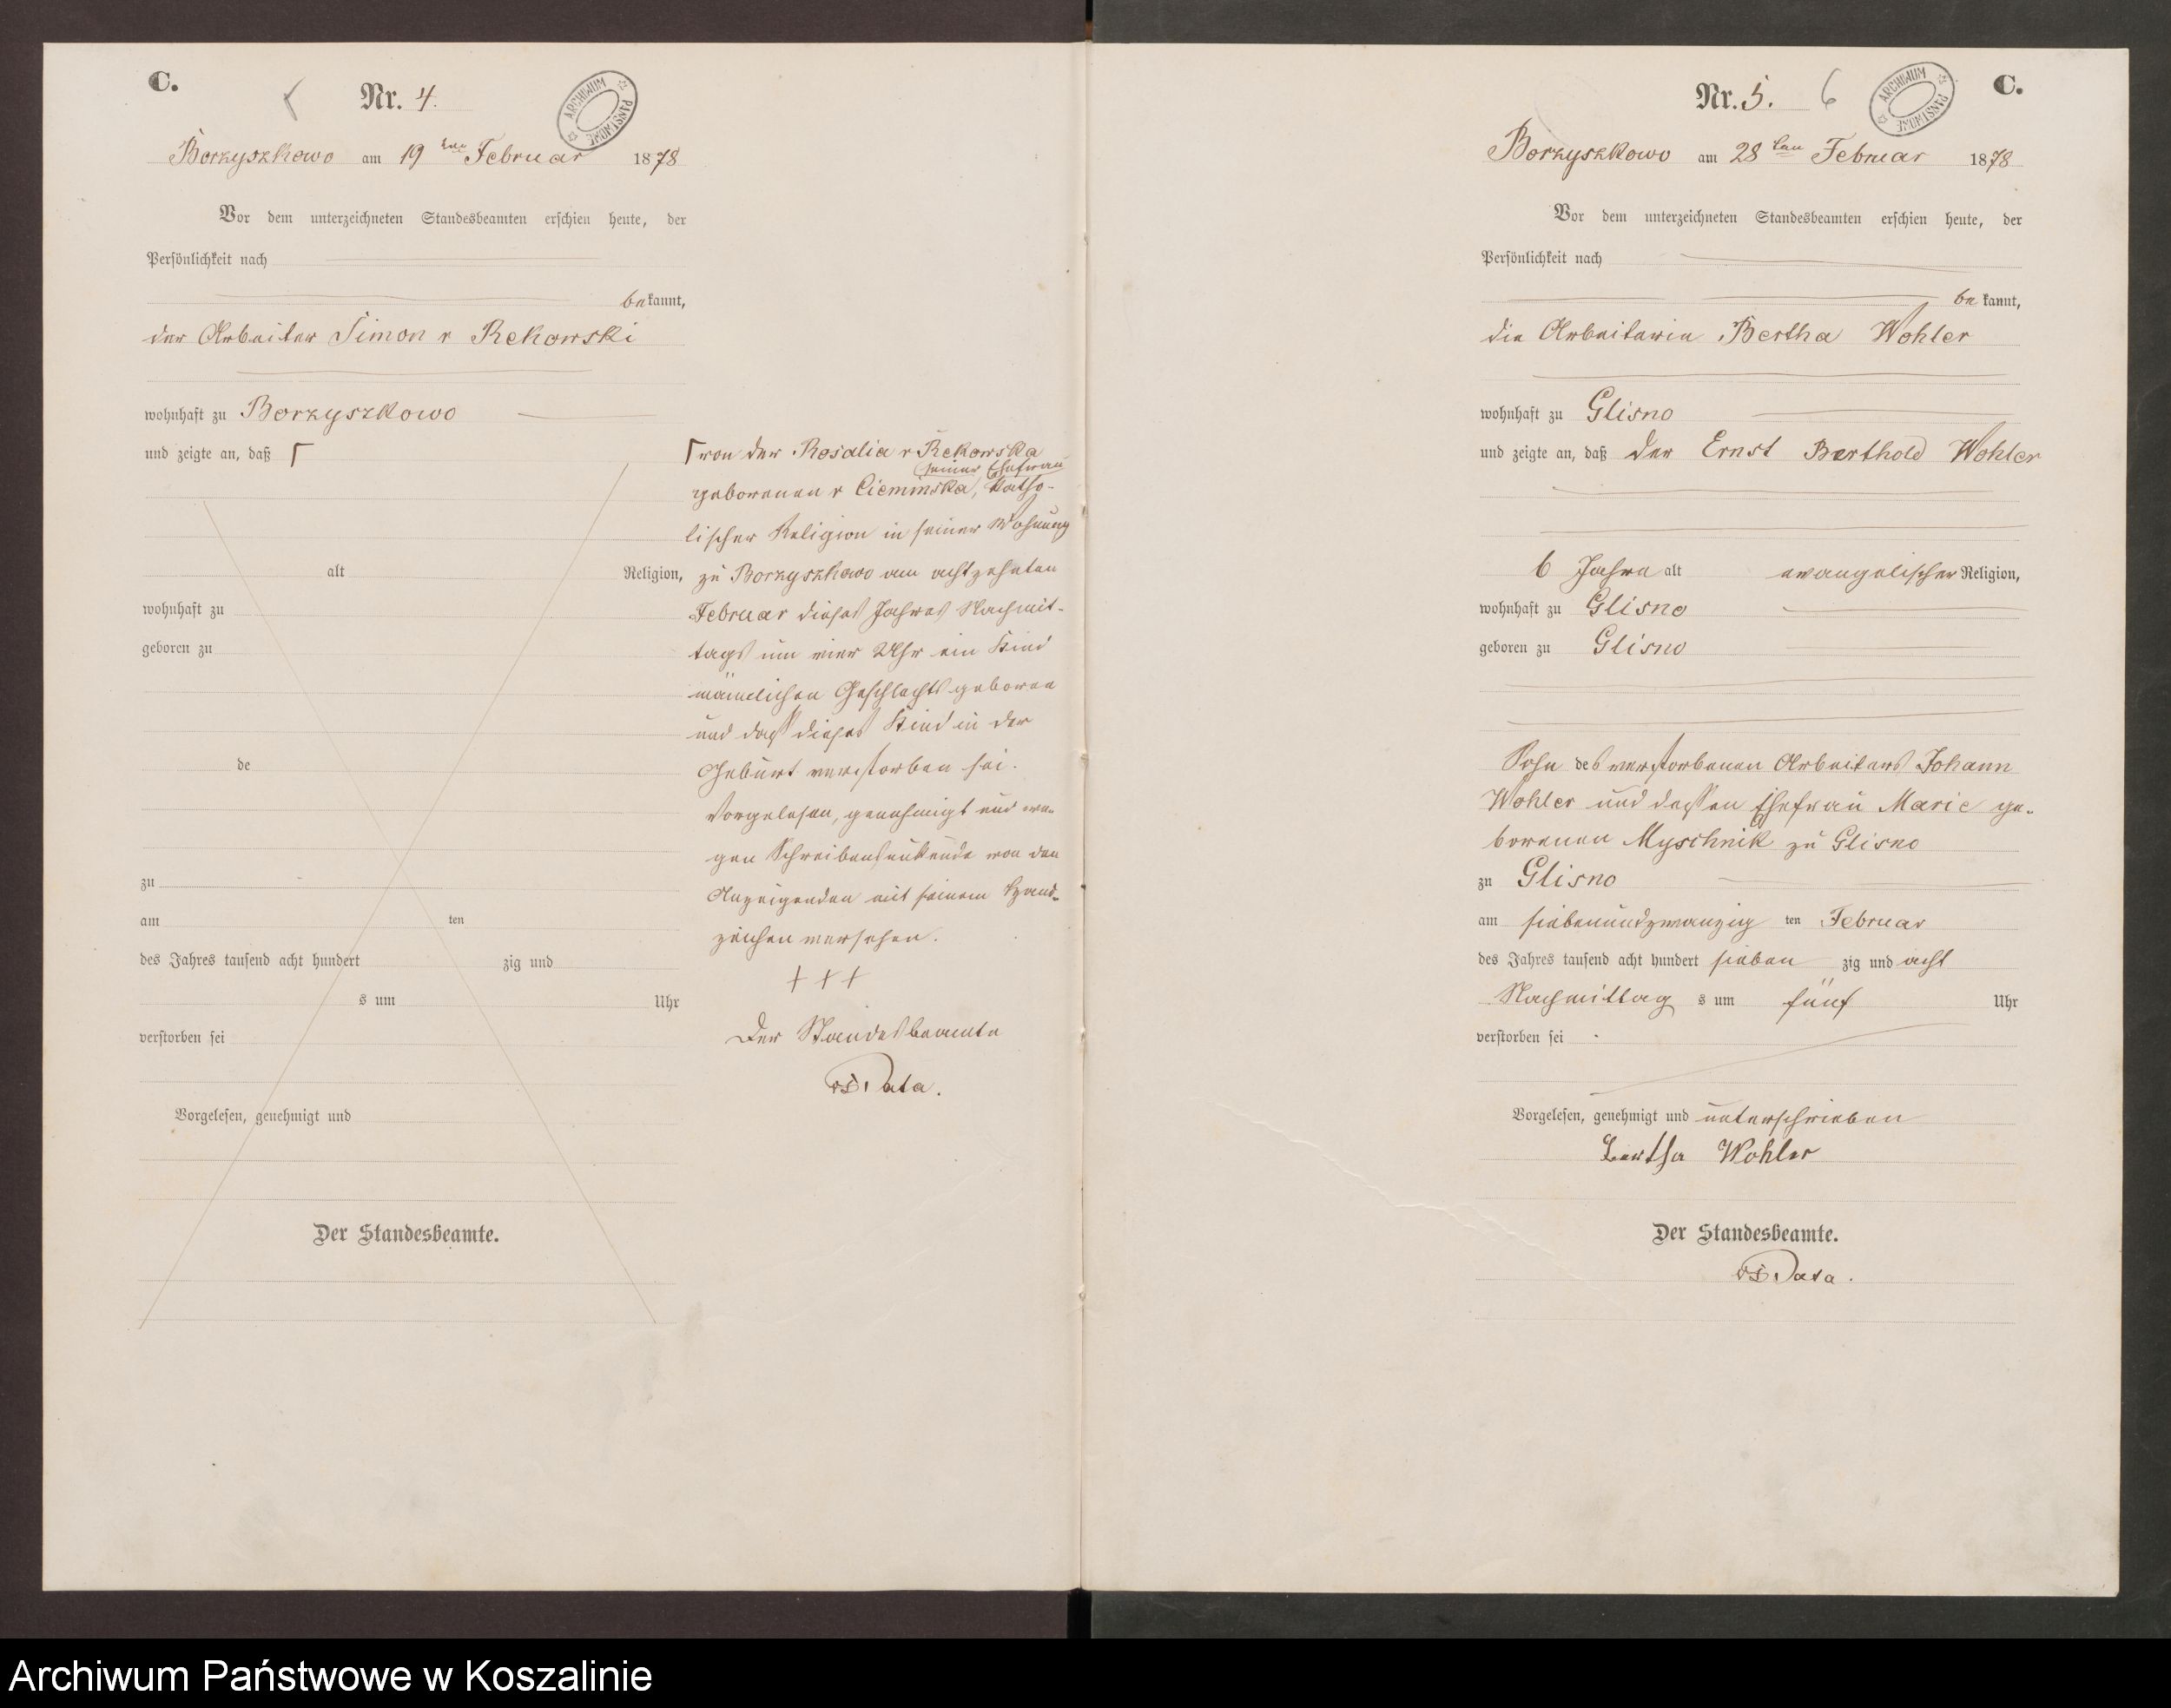 C.
Nr. 4.
ARCHIWUM PAŃSTWOWE
Borzyszkowo am 19 ten Februar 1878
Vor dem unterzeichneten Standesbeamten erschien heute, der
Persönlichkeit nach
bekannt,
der Arbeiter Simon v Rekowski
wohnhaft zu Borzyszkowo
und zeigte an, daß Γ
alt Religion,
wohnhaft zu
geboren zu
de
zu
am ten
des Jahres tausend acht hundert zig und
s um Uhr
verstorben sei
Vorgelesen, genehmigt und
Der Standesbeamte.
Γ von der Rosalia v Rekowska
seiner Ehefrau
geborenen v Cieminska, katho-
lischer Religion in seiner Wohnung
zu Borzyszkowo am achtzehnten
Februar dieses Jahres Nachmit-
tags um vier Uhr ein Kind
männlichen Geschlechts geboren
und daß dieses Kind in der
Geburt verstorben sei.
Vorgelesen, genehmigt und we-
gen Schreibensunkunde von dem
Anzeigenden mit seinem Hand-
zeichen versehen.
+ + +
Der Standesbeamte
Data.
Nr. 5. 6
ARCHIWUM PAŃSTWOWE
C.
Borzyszkowo am 28 ten Februar 1878
Vor dem unterzeichneten Standesbeamten erschien heute, der
Persönlichkeit nach
bekannt,
die Arbeiterin Bertha Wohler
wohnhaft zu Glisno
und zeigte an, daß der Ernst Berthold Wohler
6 Jahre alt evangelischer Religion,
wohnhaft zu Glisno
geboren zu Glisno
Sohn des verstorbenen Arbeiters Johann
Wohler und dessen Ehefrau Marie ge-
borenen Myschnik zu Glisno
zu Glisno
am siebenundzwanzig ten Februar
des Jahres tausend acht hundert sieben zig und acht
Nachmittag s um fünf Uhr
verstorben sei
Vorgelesen, genehmigt und unterschrieben
Bertha Wohler
Der Standesbeamte.
Data.
Archiwum Państwowe w Koszalinie